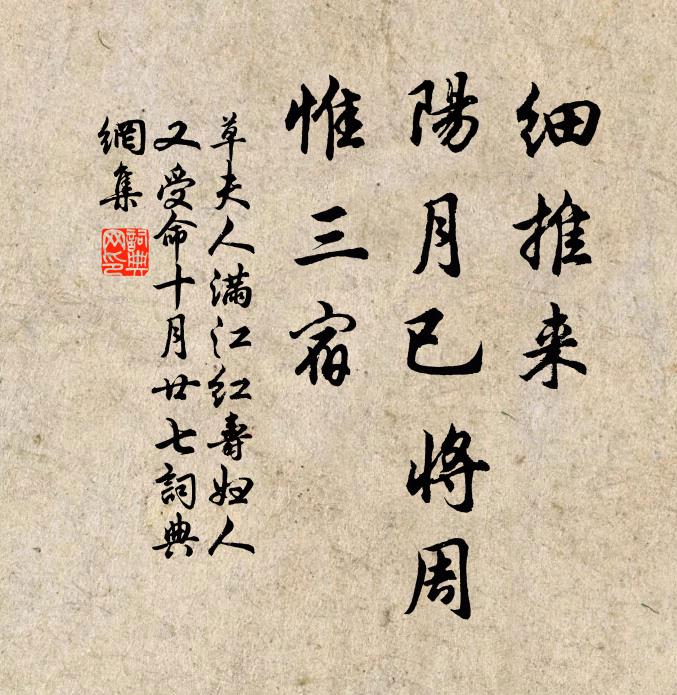 細推来
陽月已將周
惟三宿
草夫人滿江红壽妇人
又受命十月廿七詞典
網集
詞典
网印